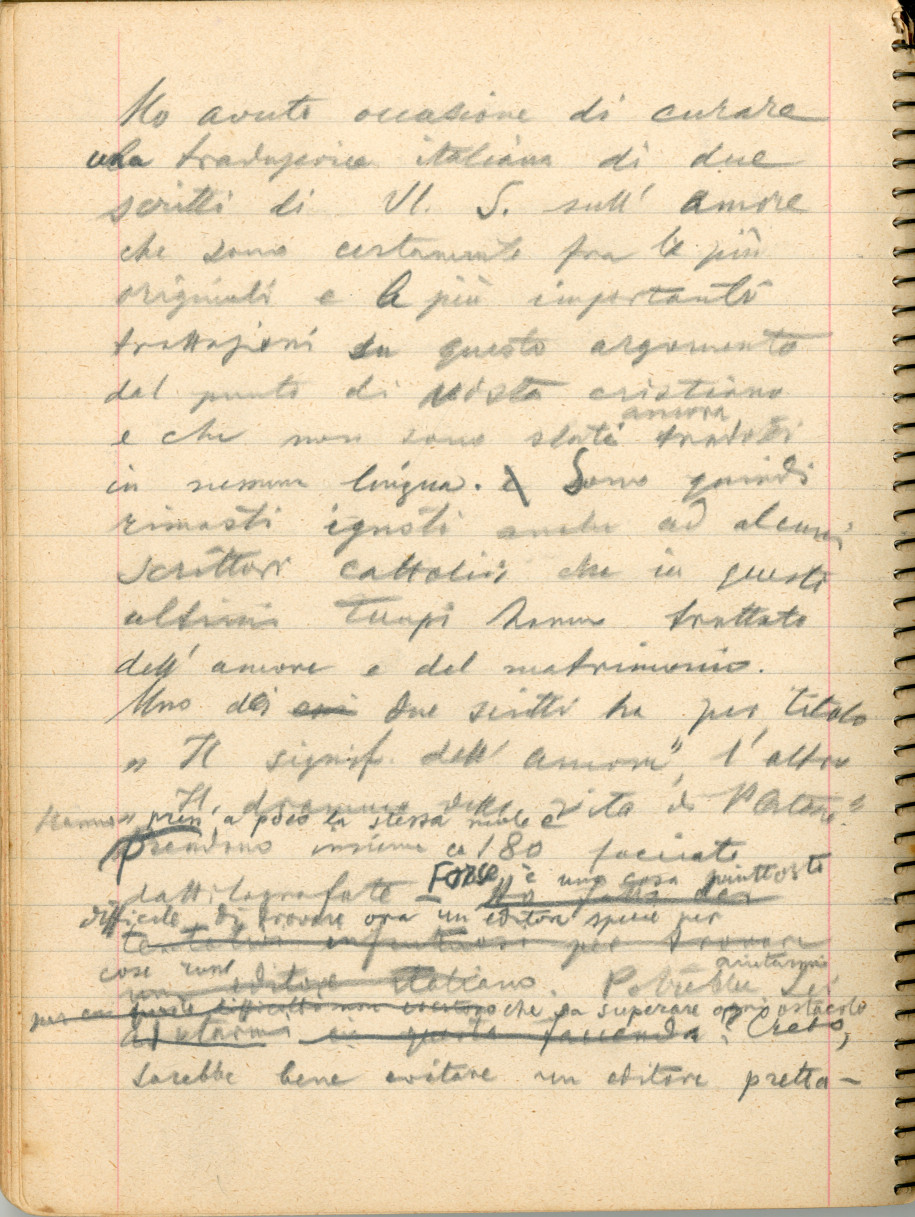 Ho avuto occasione di curare
una traduzione italiana di due
scritti di Vl. S. sull' amore
che sono certamente fra le più
originali e le più importanti
trattazioni su questo argomento
dal punto di vista cristiano
ancora
e che non sono stati tradotti
in nessuna lingua. e Sono quindi
rimasti ignoti anche ad alcuni
scrittori cattolici che in questi
ultimi tempi hanno trattato
dell' amore e del matrimonio.
Uno dei due scritti ha per titolo
" Il signif. dell' amore", l' altro
" Il dramma della vita di Platone"
Hanno press' a poco la stessa mole e
prendono insieme ca 180 facciate
Forse è una cosa piuttosto
dattilografate – Ho fatto dei
difficile di trovare ora un editore specie per
tentativi infruttuosi per trovare
cose
un editore italiano. Potrebbe Lei
aiutarmi
difficoltà non che sa superare ogni ostacolo
aiutarmi in questa faccenda? Credo,
sarebbe bene evitare un editore pretta–